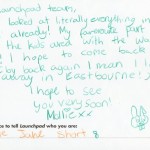 Launchpad team,
looked at literally everything in
already! My favourite part
the kids area with the wa
I hope to come back
by back again I mean I
day in Eastbourne!)
I hope to see
you very soon!
Mollie xx
ce to tell Launchpad who you are:
June Short 8